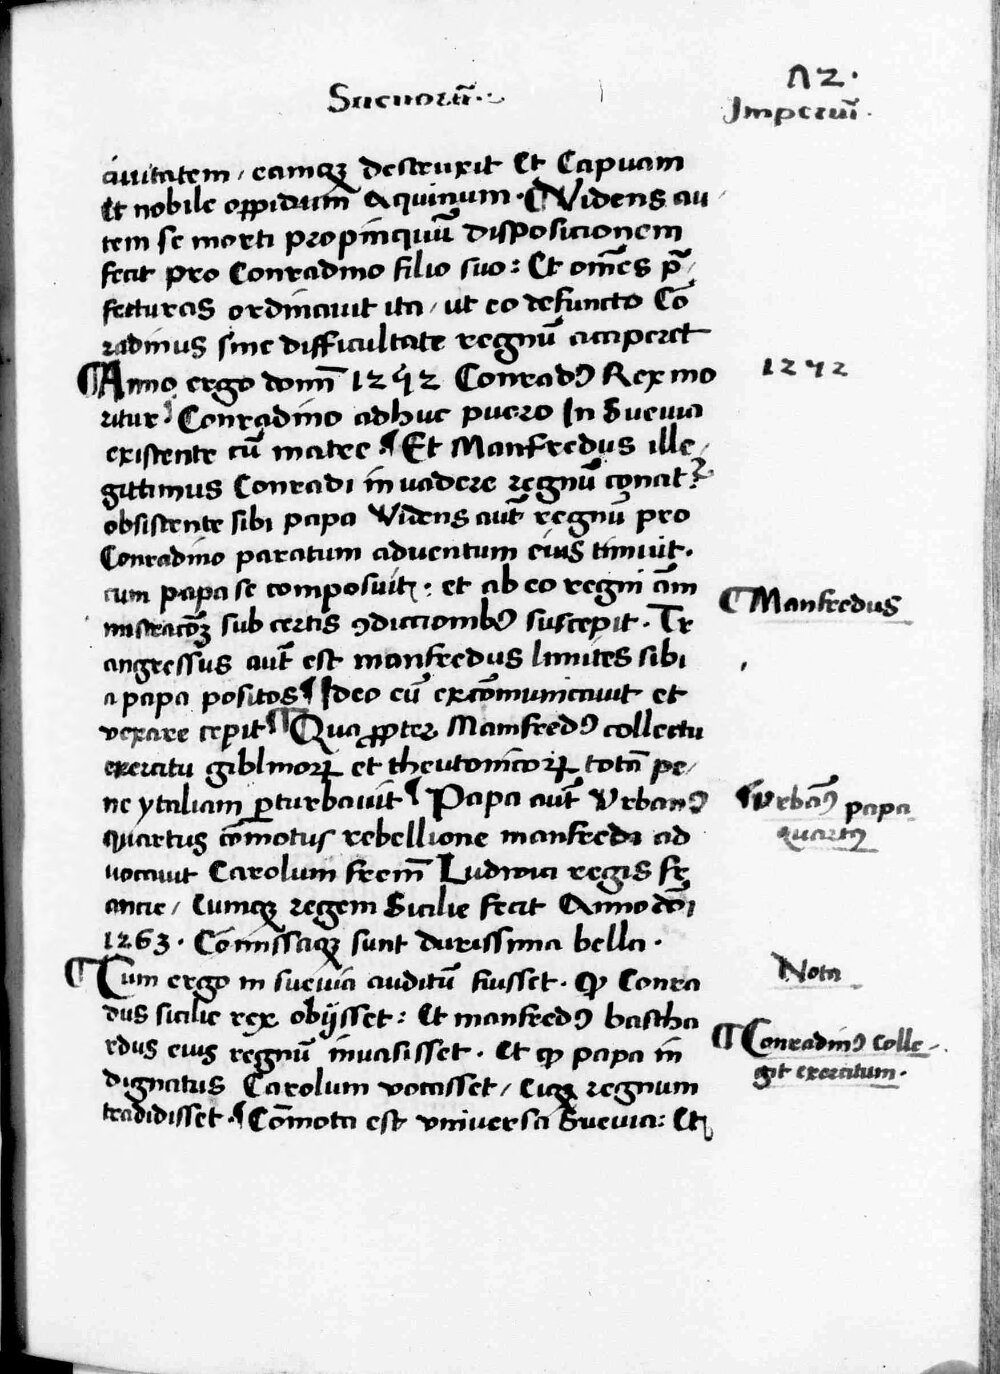 Sueuorū.
Λ2.
Imperiū.
ciuitatem, eamqꝫ destruxit Et Capuam
Et nobile oppidum Aquinum. ¶Videns au
tem se morti propinquū disposicionem
fecit pro Conradino filio suo: Et om̄es p̄
fecturas ordinauit ita, ut eo defuncto Cō
radinus sine difficultate regnū acciperet
¶Anno ergo domī 1252 Conradꝰ Rex mo
ritur ¶Conradino adhuc puero In Sueuia
existente cū matre ¶Et Manfredus ille,
gittimus Conradi inuadere regnū conat᷑
obsistente sibi papa Videns aut̄ regnū pro
Conradino paratum aduentum eius timuit.
cum papa se composuit: et ab eo regni am̄
nistracōꝫ sub certis ꝯdiccionibꝰ suscepit. Tr
angressus aut̄ est manfredus limites sibi
a papa positos ¶Ideo eū excōmunicauit et
vexare cepit ¶Qua ꝓpter Manfredꝰ collectu
exercitu giblinorꝝ et theutonicorꝝ totā pe,
ne ytaliam ꝑturbauit ¶Papa aut̄ Vrbanꝰ
quartus cōmotus rebellione manfredi ad
uocauit Carolum frem̄ Ludwici regis fr
ancie, Eumqꝫ regem Sicilie fecit Anno dōi
1263. Cōmissaqꝫ sunt durissima bella.
¶Cum ergo in sueuia auditū fuisset. ꝙ Conra
dus sicilie rex obijsset: Et manfredꝰ bastha
rdus eius regnū inuasisset. Et ꝙ papa in
dignatus Carolum vocasset, eiqꝫ regnum
tradidisset. ¶Cōmota est vniuersa Sueuia: Et
1252
¶Manfredus
¶Vrbāꝰ papa
quartꝰ
Nota
¶Conradinꝰ Colle-
git exercitum.